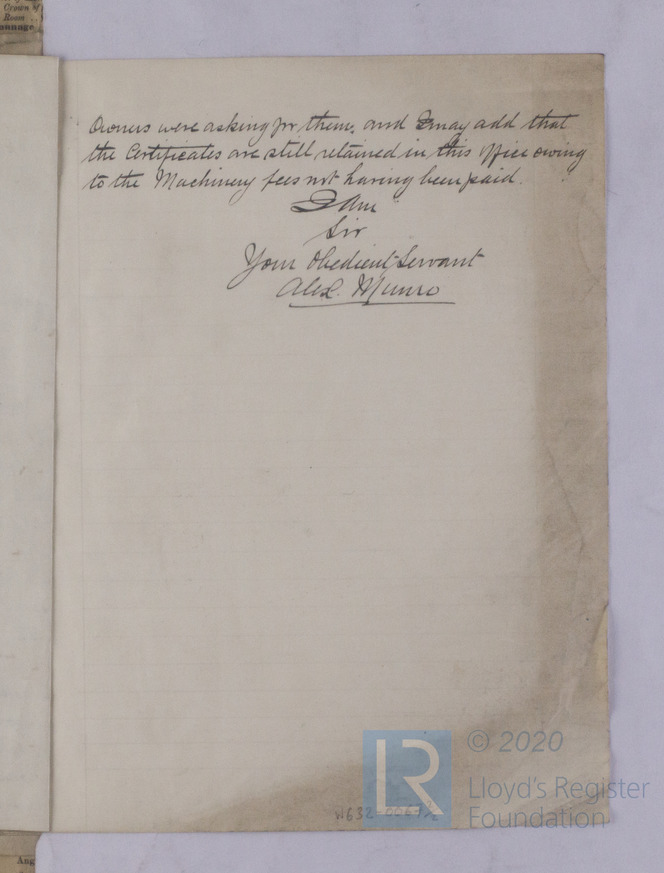 Crown of
Room
annage
Owners were asking for them, and I may add that
the Certificates are still retained in this office owing
to the Machinery fees not having been paid.
I Am
Sir
Your Obedient Servant
Alex. Munro
LR
© 2020
Lloyd's Register
Foundation
W632-0067 2/2
Aug